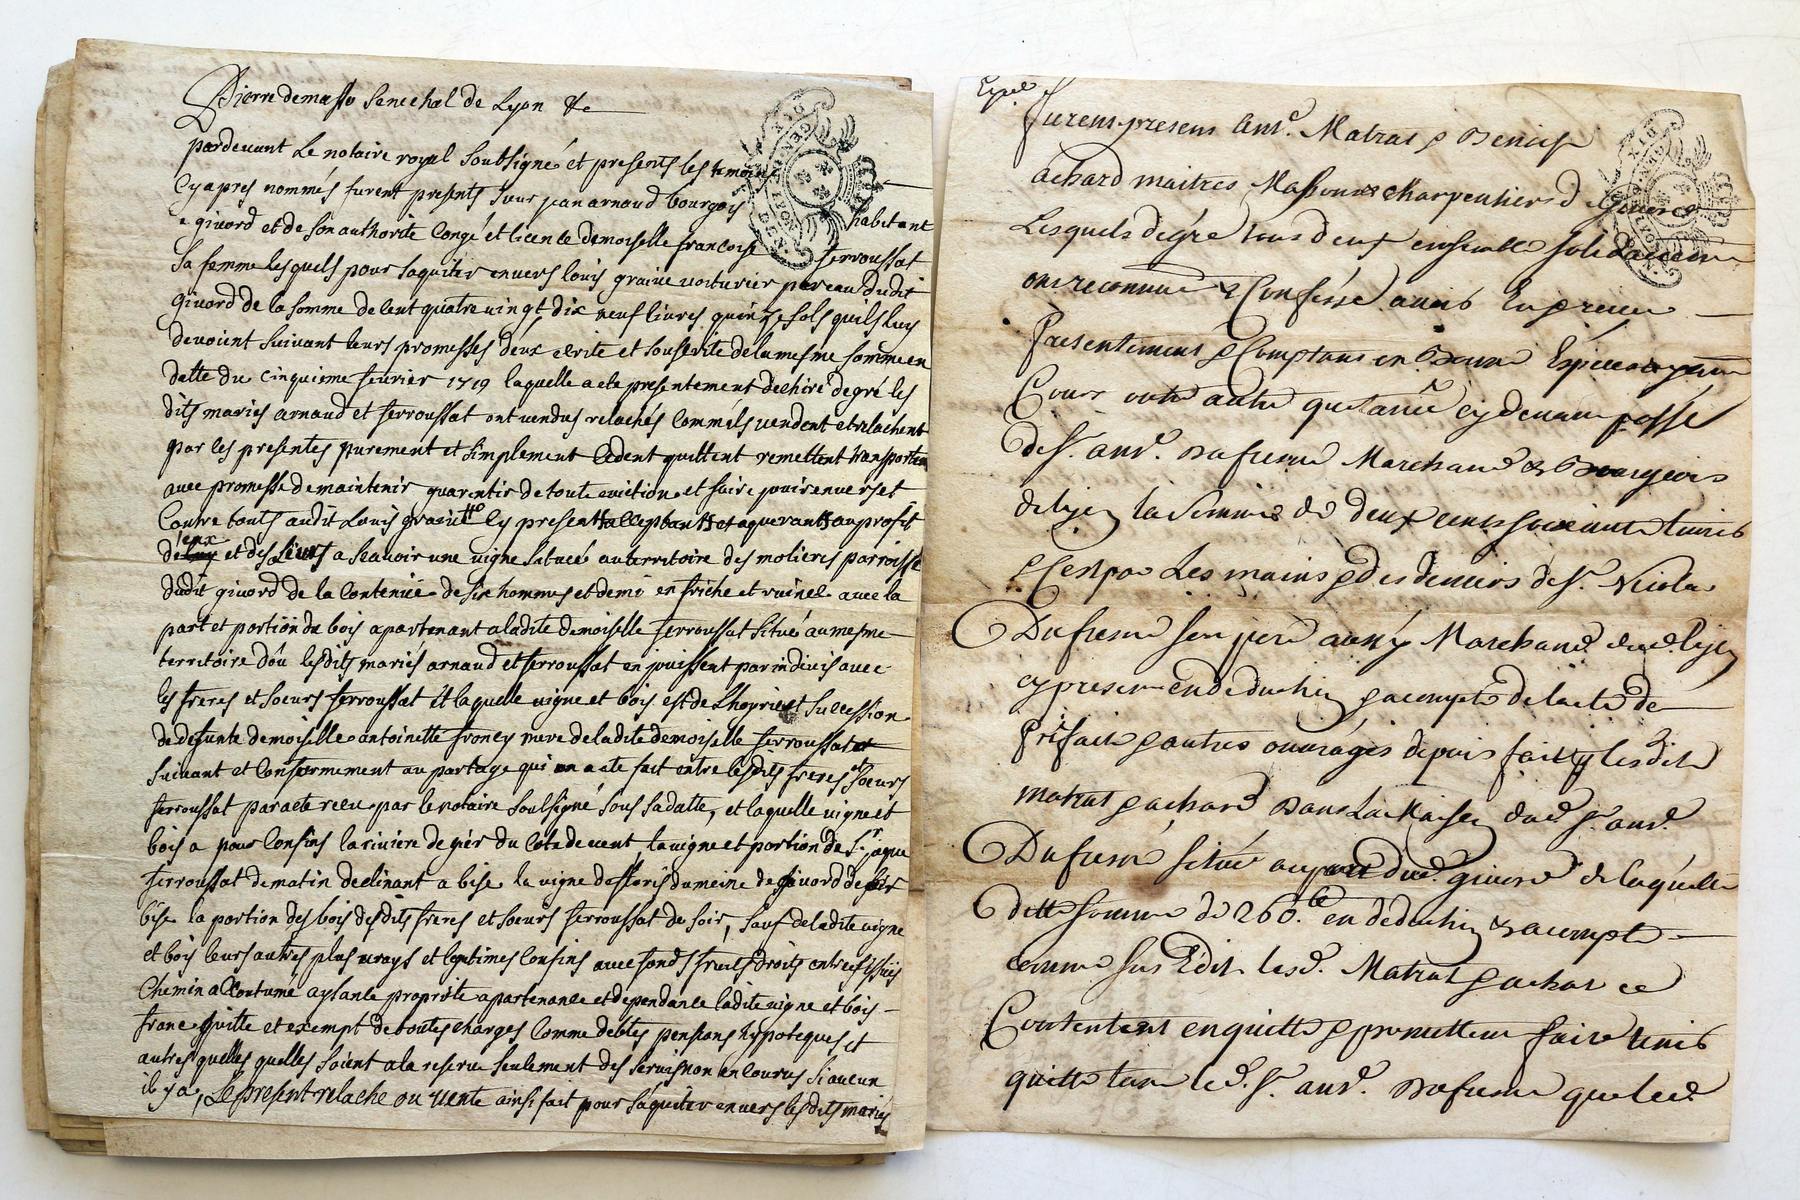 Pierre demasso senechal de Lyon &c
pardevant Le notaire royal soubsigné et presents les temoins
cy apres nommés furent presents sieur jean arnaud bourgois habitant
a givord et de son authorité congé et licence demoiselle francoise ferroussat
sa femme lesquels pour saquiter envers louis graine voiturier par eau dudit
givord de la somme de cent quatre vingt dix neuf livres quinze sols quils luy
devoient suivant leurs promesses deux ecrite et souscrite de la mesme somme en
datte du cinquieme fevrier 1719 laquelle a ete presentement dechiré de gré les
dits maries arnaud et ferroussat ont vendus relachés comme ils vendent et relachent
par les presentes purement et simplement cedent quittent remettent transportent
avec promesse de maintenir guarentir de toute eviction et faire jouir envers et
contre touts audit Louis cy present acceptant et aquerant au profit
d'eux et des siens a scavoir une vigne situeé au territoire des molieres parroisse
dudit givord de la contenüe de six hommes et demi en friche et ruineé avec la
part et portion du bois apartenant a ladite demoiselle ferroussat situé au mesme
territoire dou lesdits mariés arnaud et ferroussat en jouissent par indivis avec
les freres et soeurs ferroussat et laquelle vigne et bois est de Lhoprie et succession
de defunte demoiselle antoinette froney mere de ladite demoiselle ferroussat
suivant et conformement au partage qui en a ete fait entre lesdits freres et soeurs
ferroussat par acte receu par le notaire soubsigné sous sa datte, et laquelle vigne et
bois a pour confins la riviere de gier du coté de vent la vigne et portion de Sr. jaque
ferroussat de matin declinant a bise la vigne du meine de givord de
bise la portion des bois desdits freres et soeurs ferroussat de soir, sauf de ladite vigne
et bois leurs autres plus vrays et legitimes confins avec fonds fruits droits entreés issües
chemin accoutumé aysance proprieté apartenance et dependance ladite vigne et bois
franc quitte et exempt de toutes charges comme debtes pensions hypoteques et
autres quelles quelles soient a la reserve seulement des servis non encourus si aucun
il y a, Le present relache ou vente ainsi fait pour saquiter envers lesdits maries
Furent presens Ant. Matrat & Benoist
Achard maitres Massons & charpentiers d Givors
Lesquels de gré tous deux ensemble solidairement
ont reconnu & Conféssé avoir Eu & receu
Presentement & Comptant en Bonne Espéces ayant
Cours outre autre quitance cy devant passé
de Sr. ant. Dufresne Marchand & Bourgeois
de lyon la Somme de deux cents soixante livres
& Cest par Les mains & des deniers de Sr. Nicolas
Dufresne son pere aussy Marchand dud. lyon
cy present en deduction & acompte de lacte de
Prifait & autres ouvrages depuis fait p lesdits
matrat & achard Dans La Maison dud Sr. ant.
Dufresne situé au port dud. givord de laquelle
ditte somme de 260. en deduction & acompte
comme sus Edit lesd. Matrat & achard ce
Contentent enquitte & promettent faire tenir
quitte tant led. Sr. ant. Dufresne que led.